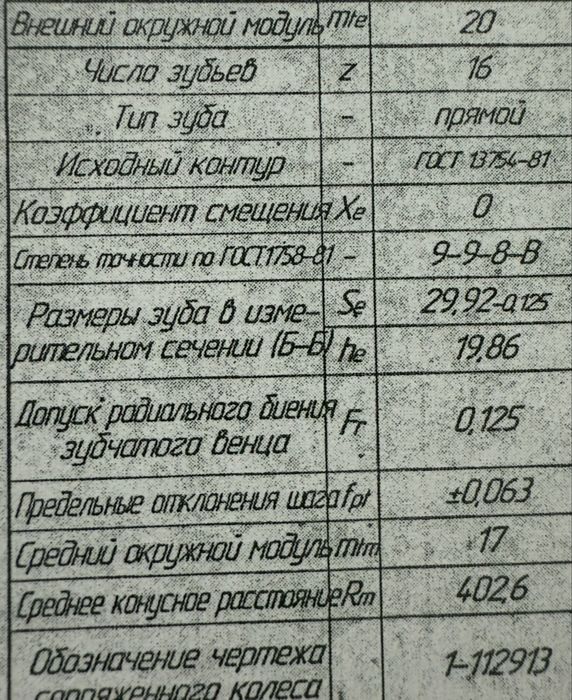 Внешний окружной модуль mte 20
Число зубьев z 16
Тип зуба - прямой
Исходный контур - ГОСТ 13754-81
Коэффициент смещения Xe 0
Степень точности по ГОСТ1758-81 - 9-9-8-В
Размеры зуба в изме-
рительном сечении (Б-Б)
Se 29,92-0,125
he 19,86
Допуск радиального биения
зубчатого венца
Fr 0,125
Предельные отклонения шага fpt ±0,063
Средний окружной модуль mtm 17
Среднее конусное расстояние Rm 402,6
Обозначение чертежа
сопряженного колеса
1-112913